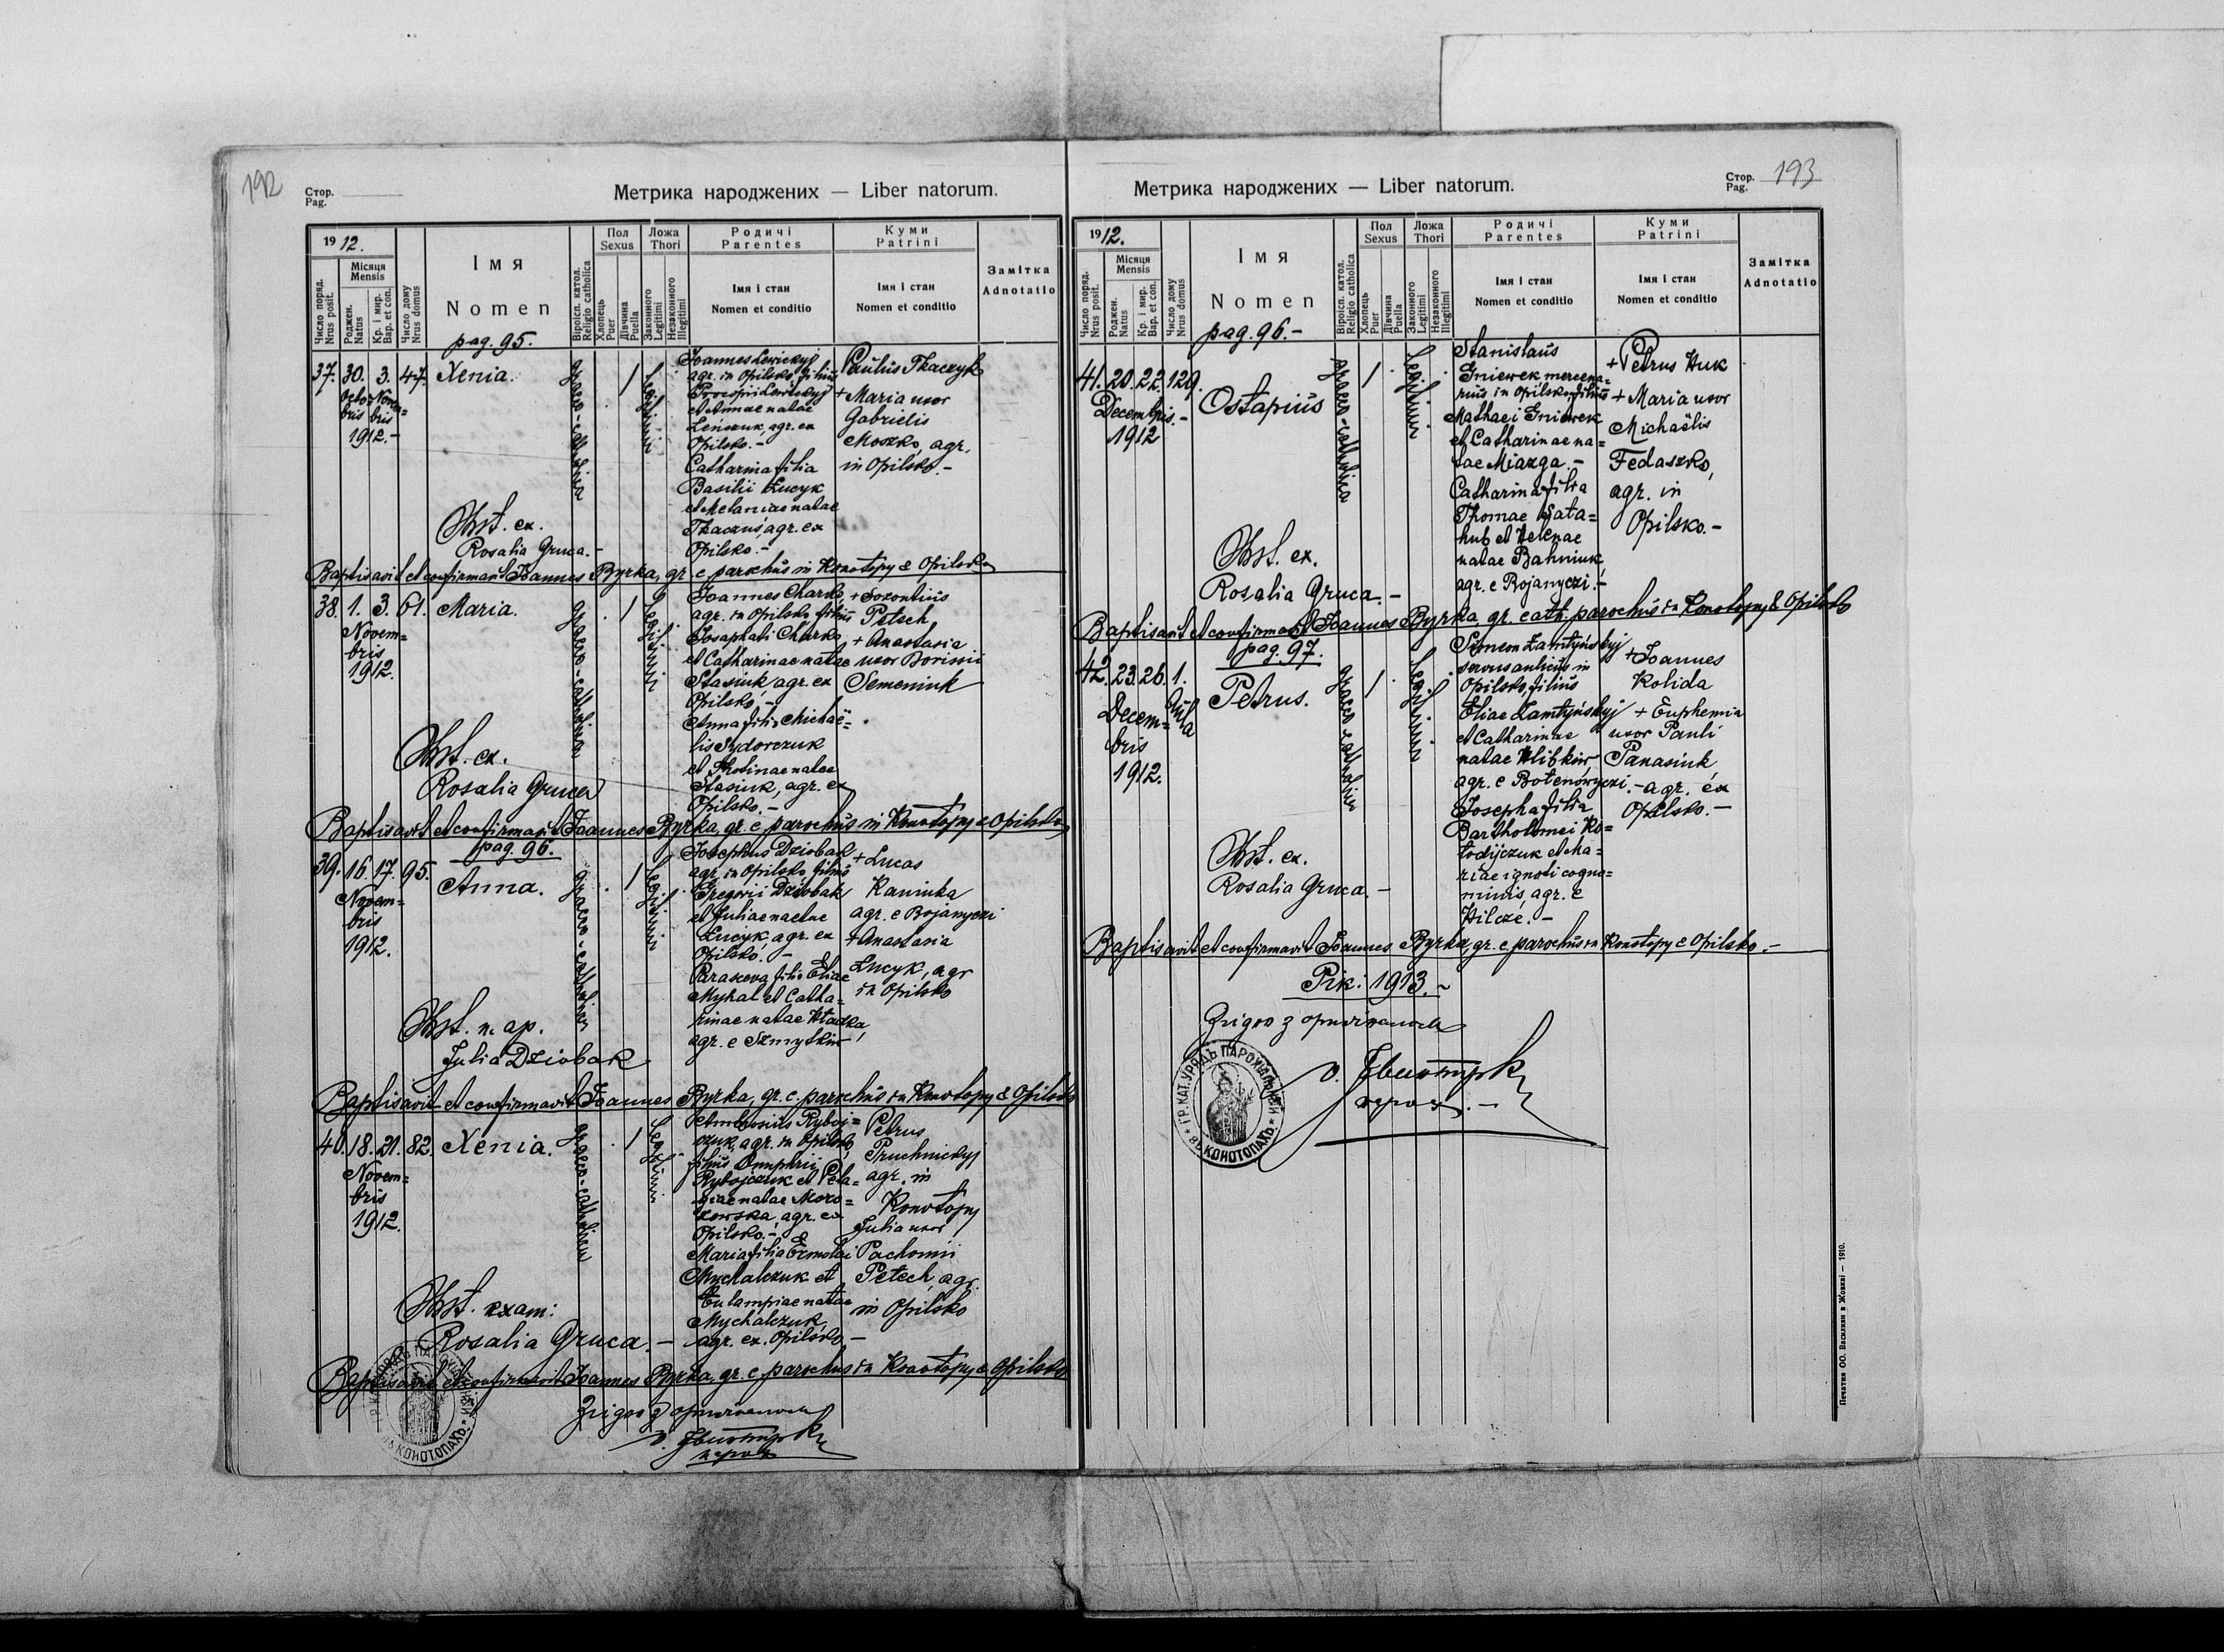 192
Стор.
Pag.
Метрика народжених — Liber natorum.
1912.
Число поряд.
Nrus posit.
Місяця
Mensis
Роджен.
Natus
Кр. і мир.
Bap. et con.
Число дому
Nrus domus
Імя
Nomen
pag. 95.
Віроісп. катол.
Religio catholica
Пол
Sexus
Хлопець
Puer
Дівчина
Puella
Ложа
Thori
Законного
Legitimi
Незаконного
Illegitimi
Родичі
Parentes
Імя і стан
Nomen et conditio
Куми
Patrini
Імя і стан
Nomen et conditio
Замітка
Adnotatio
37. 30. 3. 47. Xenia.
Octo= Novem=
bris bris
1912.-
graeco-catholica
1
Legitimi
Joannes Lewickyj
agr. in Opilsko, filius
Procopii Lewickyj
et Annae natae
Lenczuk, agr. ex
Opilsko.-
Catharina filia
Basilii Łucyk
et Melaniae natae
Tkaczuś, agr. ex
Opilsko.-
Paulus Tkaczyk
+ Maria uxor
Gabrielis
Moszko, agr.
in Opilsko.-
Obst. ex.
Rosalia Gruca.-
Baptisavit et confirmavit Joannes Byrka, gr. c. parochus in Konotopy & Opilsko
38. 1. 3. 61. Maria.
Novem=
bris
1912.
graeco-catholica
1
Legitimi
Joannes Charko,
agr. in Opilsko, filius
Josaphati Charko
et Catharinae natae
Stasiuk, agr. ex
Opilsko.-
Anna filia Michaë=
lis Sydorczuk
et Fhotinae natae
Stasiuk, agr. ex
Opilsko.-
+ Sozontius
Petech
+ Anastasia
uxor Borisii
Semeniuk
Obst. ex.
Rosalia Gruca
Baptisavit et confirmavit Joannes Byrka, gr. c. parochus in Konotopy & Opilsko
pag. 96.
39. 16. 17. 95. Anna.
Novem=
bris
1912.
graeco-catholica
1
Legitimi
Josephus Dziobak
agr. in Opilsko, filius
Gregorii Dziobak
et Juliae natae
Łucyk, agr. ex
Opilsko.-
Parasceva filia Eliae
Myhal et Catha=
rinae natae Hładka,
agr. e Szmytkiw
+ Lucas
Kaminka
agr. e Bojanyczi
+ Anastasia
Łucyk, agr
in Opilsko
Obst. n. ap.
Julia Dziobak
Baptisavit et confirmavit Joannes Byrka, gr. c. parochus in Konotopy & Opilsko
40. 18. 21. 82. Xenia.
Novem=
bris
1912.
graeco-catholica
1
Legitimi
Ambrosius Ryboj=
czuk, agr. in Opilsko,
filius Onuphrii
Rybojczuk et Pela=
giae natae Moro=
zowska, agr. ex
Opilsko.-
Maria filia Ermolai
Mychalczuk et
Eulampiae natae
Mychalczuk,
agr. ex. Opilsko-
Petrus
Pruchnickyj
agr. in
Konotopy
Julia uxor
Pachomii
Petech, agr.
in Opilsko
Obst. exam:
Rosalia Gruca.-
Baptisavit et confirmavit Joannes Byrka, gr. c. parochus in Konotopy & Opilsko
ВЪ КОНОТОПАХЪ
193
Стор.
Pag.
Метрика народжених — Liber natorum.
1912.
Число поряд.
Nrus posit.
Місяця
Mensis
Роджен.
Natus
Кр. і мир.
Bap. et con.
Число дому
Nrus domus
Імя
Nomen
pag. 96.-
Віроісп. катол.
Religio catholica
Пол
Sexus
Хлопець
Puer
Дівчина
Puella
Ложа
Thori
Законного
Legitimi
Незаконного
Illegitimi
Родичі
Parentes
Імя і стан
Nomen et conditio
Куми
Patrini
Імя і стан
Nomen et conditio
Замітка
Adnotatio
41. 20. 22. 129. Ostapius
Decembris.-
1912
graeco-catholica
1
Legitimi
Stanislaus
Gniewek mercena=
rius in Opilsko, filius
Mathaei Gniewek
et Catharinae na=
tae Miazga.-
Catharina filia
Thomae Sata=
hub et Helenae
natae Bahniuk,
agr. e Bojanyczi.-
+ Petrus Huk
+ Maria uxor
Michaëlis
Fedaszko,
agr. in
Opilsko.-
Obst. ex.
Rosalia Gruca.-
Baptisavit et confirmavit Joannes Byrka, gr. cath. parochus in Konotopy & Opilsko
pag. 97.
42. 23. 26. 1. Petrus.
Decem=
bris
1912.
graeco-catholica
1
Legitimi
Simeon Łamtyńskyj
servus aulicus in
Opilsko, filius
Eliae Łamtyńskyj
et Catharinae
natae Hlibkiw,
agr. e Botenowyczi.-
Josepha filia
Bartholomei Ko=
łodijczuk et Ma=
riae ignoti cogno=
minis, agr. e
Hilcze.-
+ Joannes
Kolida
+ Euphemia
uxor Pauli
Panasiuk,
agr. ex
Opilsko.-
Obst. ex.
Rosalia Gruca.-
Baptisavit et confirmavit Joannes Byrka, gr. c. parochus in Konotopy & Opilsko.-
Рік: 1913.-
ГР. КАТ. УРЯДЪ ПАРОХІАЛЬНЫЙ
ВЪ КОНОТОПАХЪ
Печатня ОО. Василиян в Жовкві — 1910.